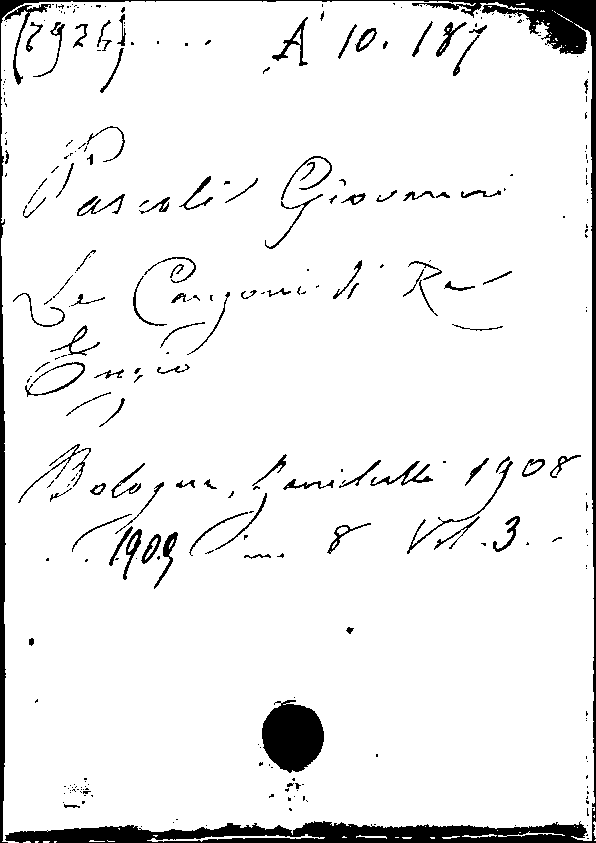 (2926) .... A 10. 187
Pascoli Giovanni
Le Canzoni di Re
Enzio
Bologna, Zanichelli 1908
.. 1909 in 8 Vol. 3. ..